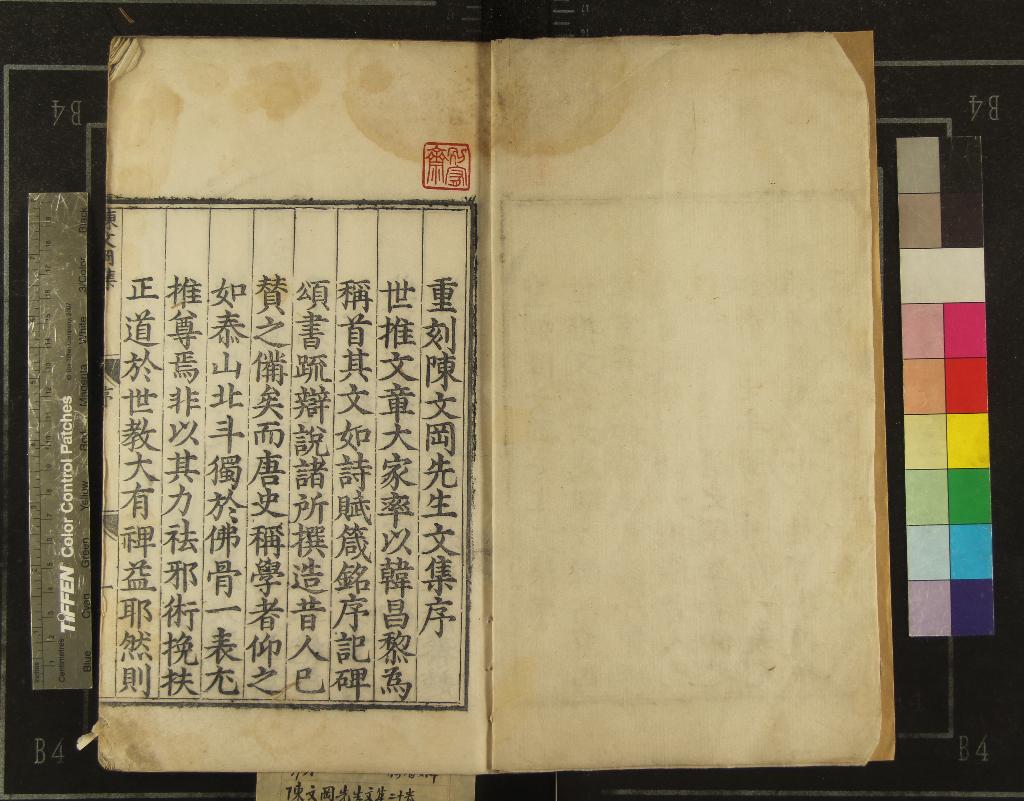 重刻陳文岡先生文集序
世推文章大家率以韓昌黎為
稱首其文如詩賦箴銘序記碑
頌書疏辯說諸所撰造昔人已
贊之備矣而唐史稱學者仰之
如泰山北斗獨於佛骨一表尤
推尊焉非以其力祛邪術挽扶
正道於世教大有裨益耶然則
陳文岡集
序
陳文岡先生文集二十卷
TIFFEN Color Control Patches
Centimetres
Blue
Cyan
Green
Yellow
Red
Magenta
White
3/Color
Black
B4
B4
B4
B4